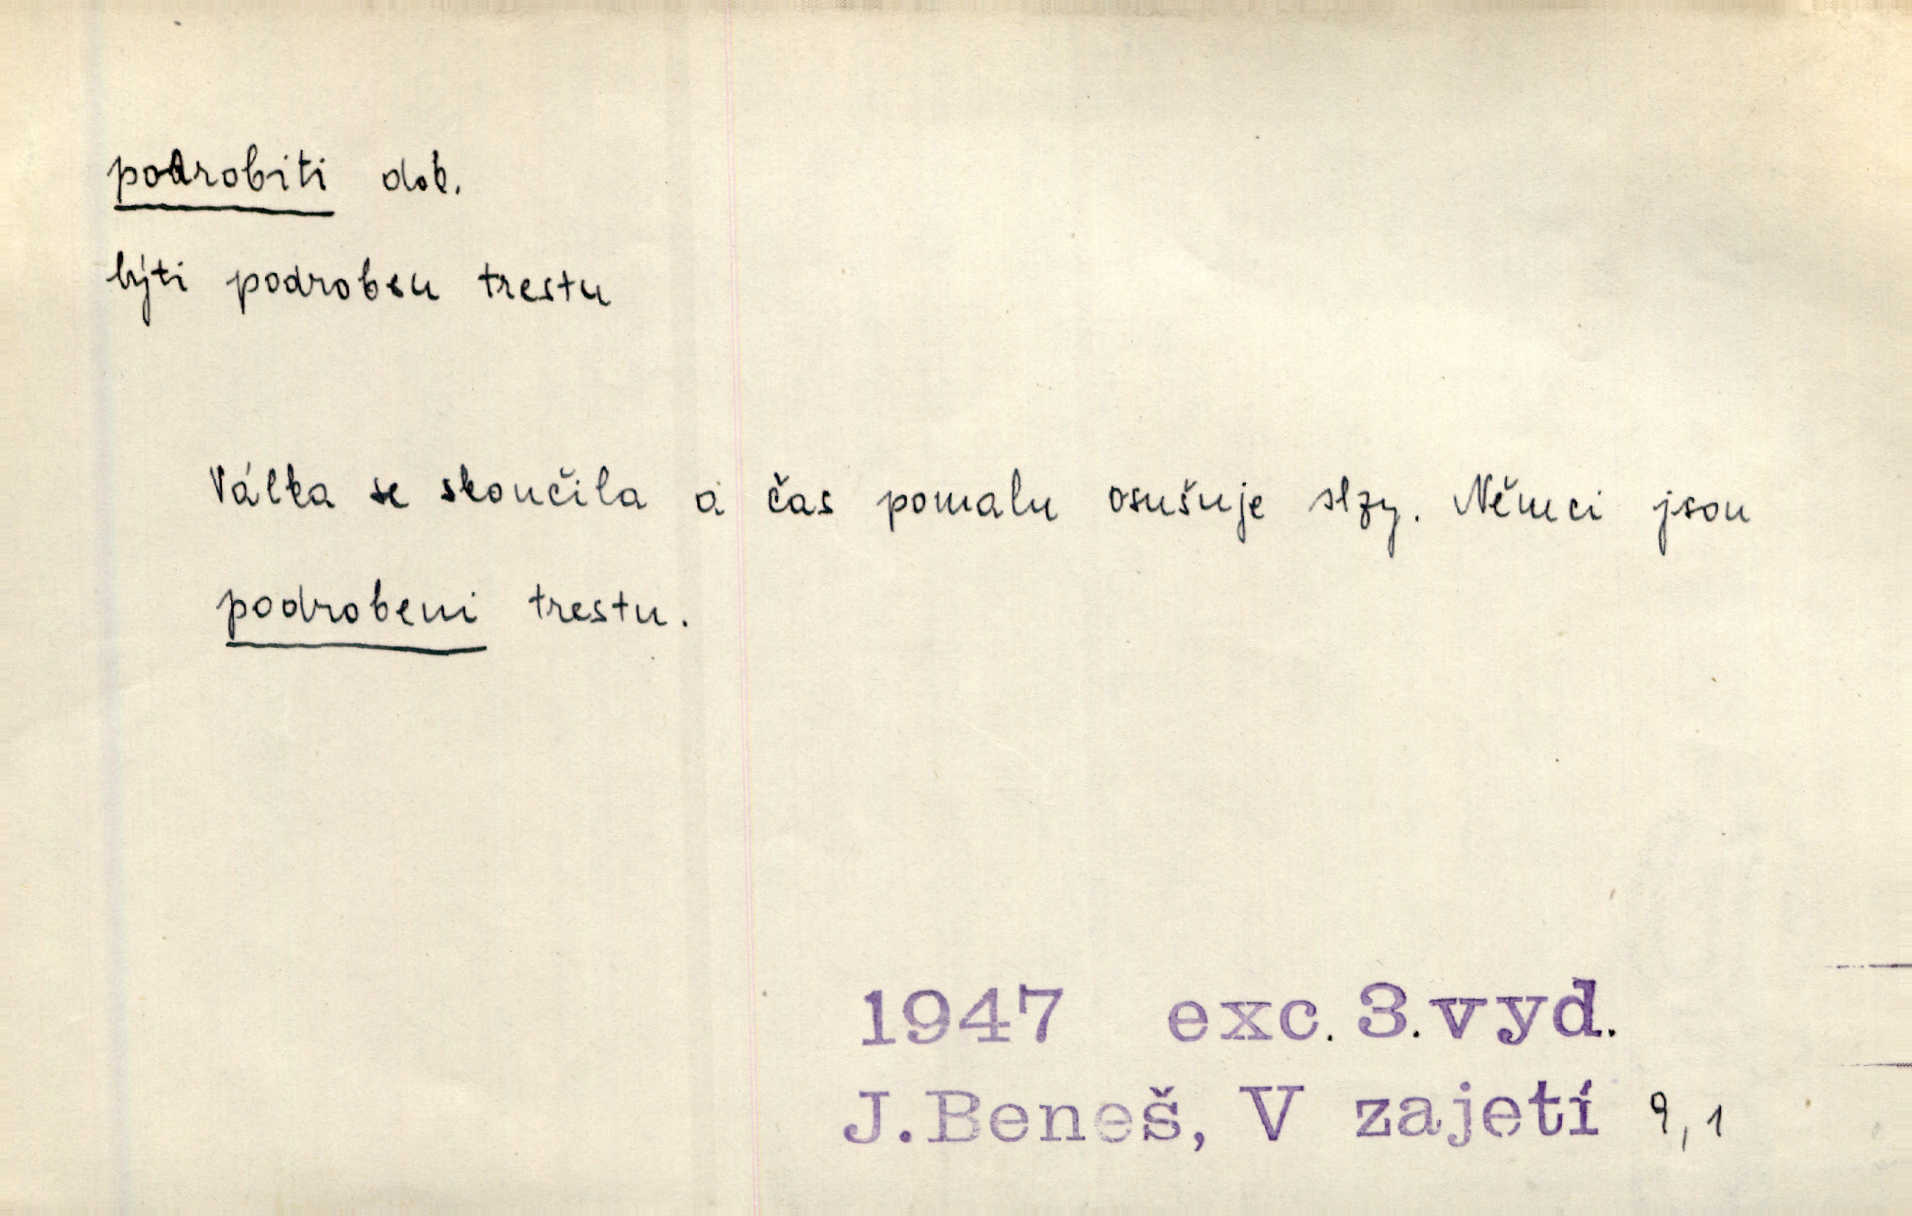 podrobiti dok.
býti podroben trestu
Válka se skončila a čas pomalu osušuje slzy. Němci jsou
podrobeni trestu.
1947 exc. 3. vyd.
J. Beneš, V zajetí 9,1